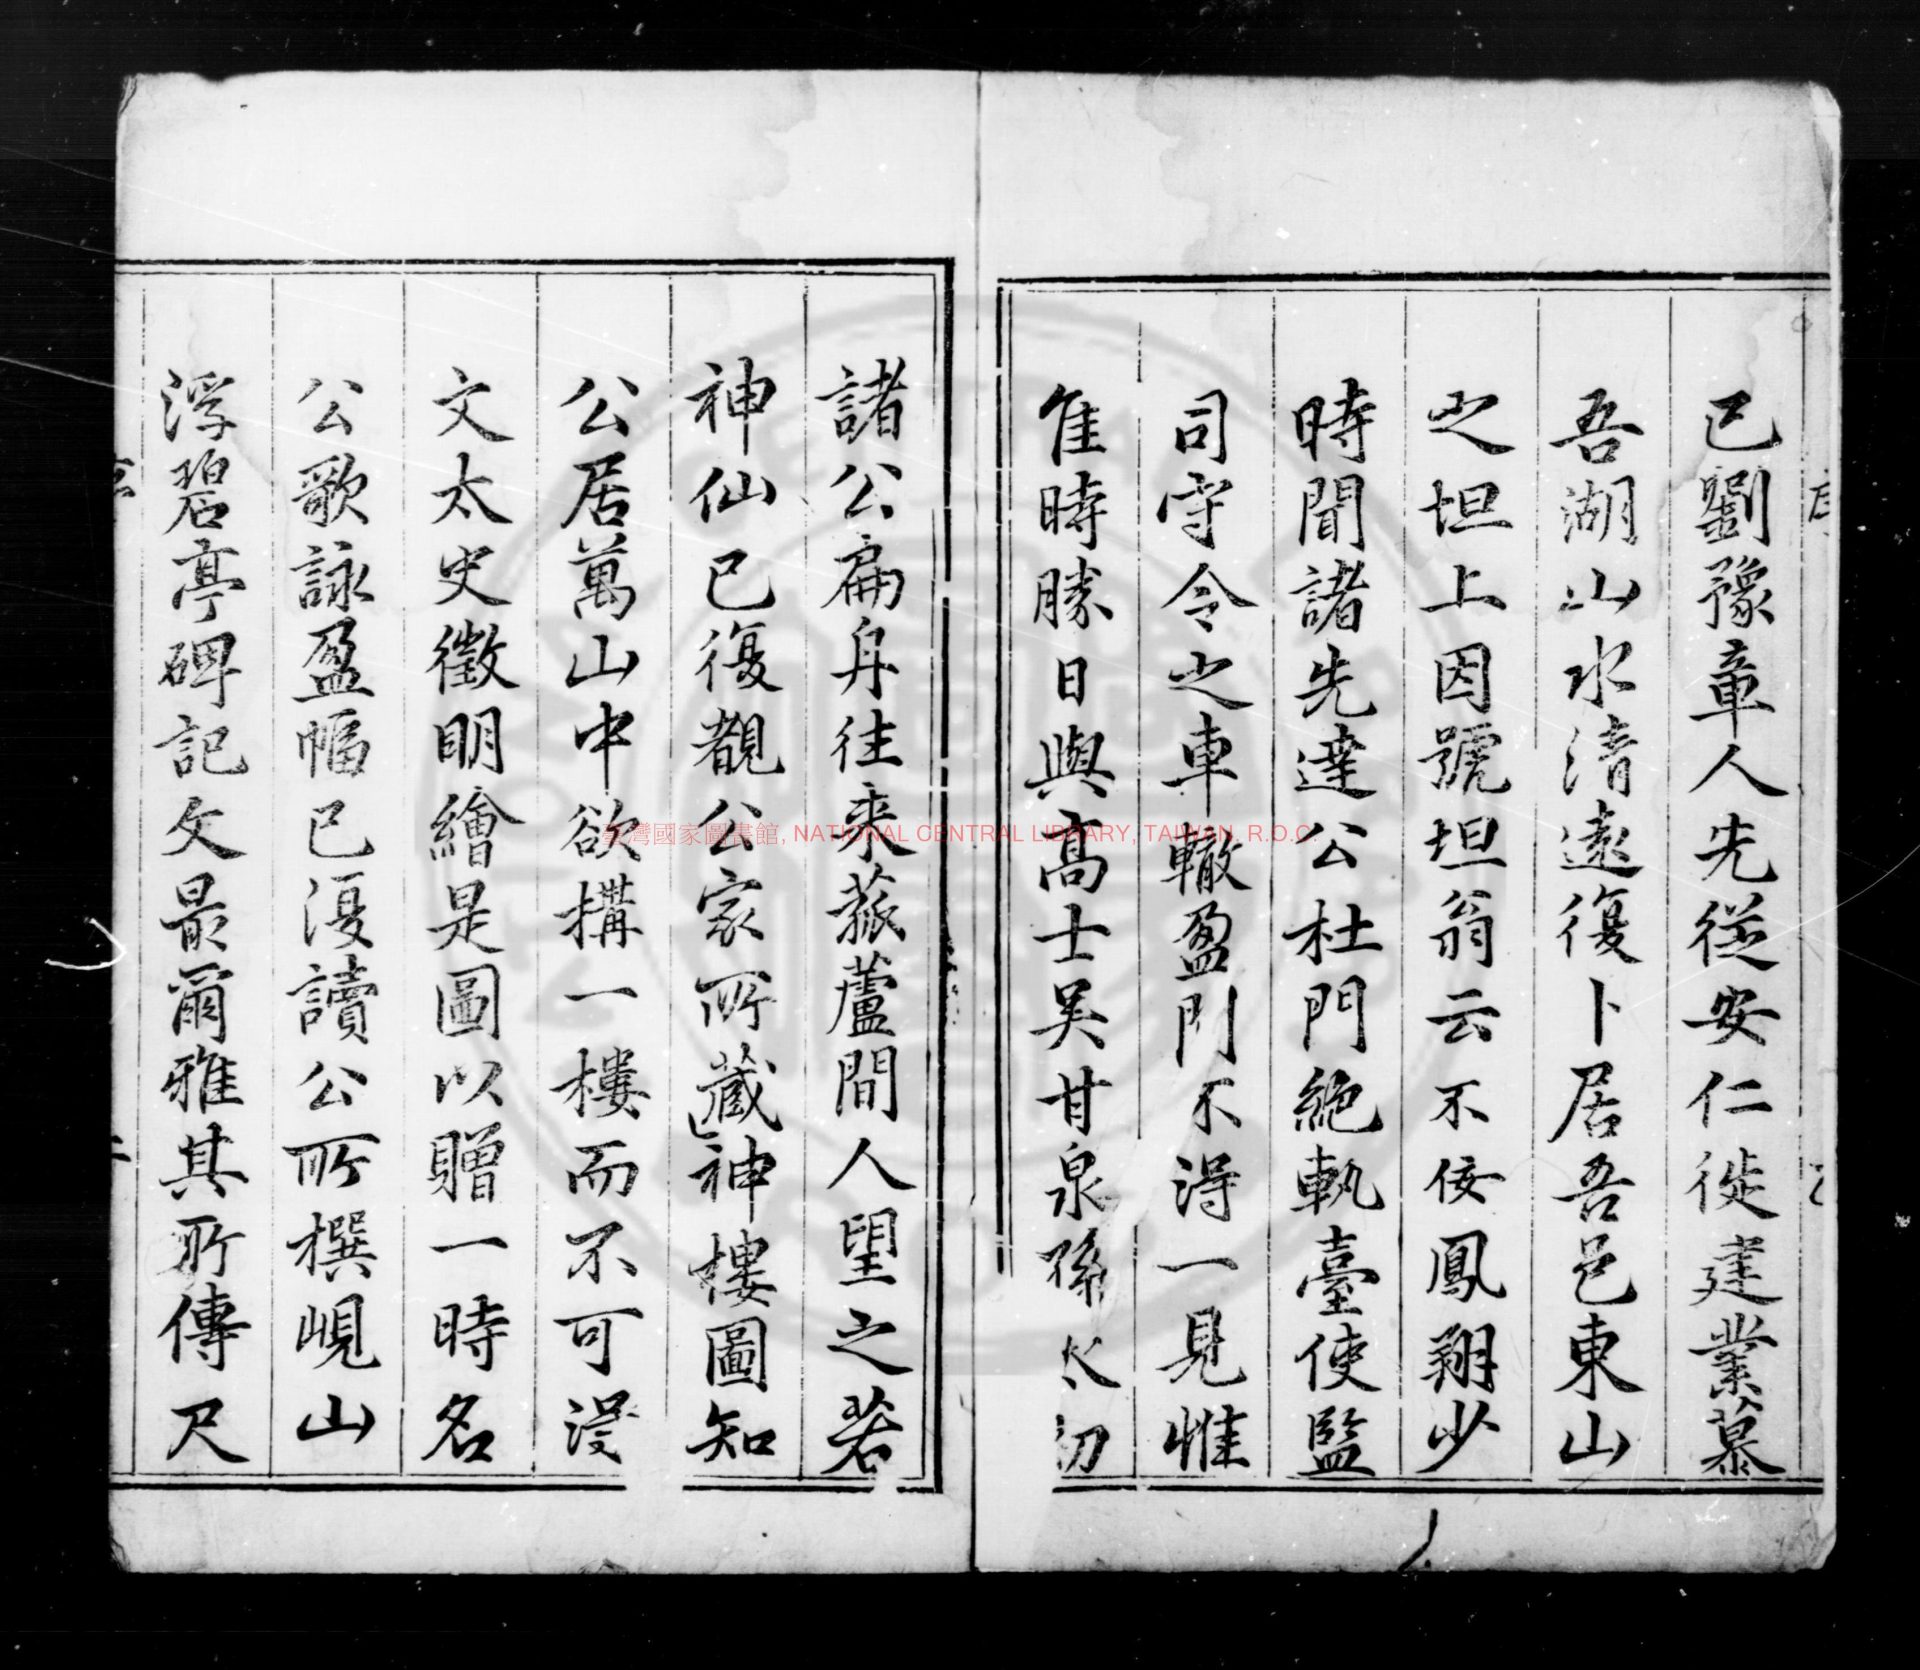 已劉豫章人先從安仁徙建業慕
吾湖山水清遠復卜居吾邑東山
之坦上因號坦翁云不佞鳳翔少
時聞諸先達公杜門絶軌臺使監
司守令之車轍盈門不得一見惟
隹時勝日與高士吳甘泉孫太初
諸公扁舟往來菰蘆間人望之若
神仙已復覩公家所藏神樓圖知
公居萬山中欲搆一樓而不可得
文太史徵明繪是圖以贈一時名
公歌詠盈幅已復讀公所撰峴山
浮碧亭碑記文最爾雅其所傳尺
臺灣國家圖書館, NATIONAL CENTRAL LIBRARY, TAIWAN, R.O.C.